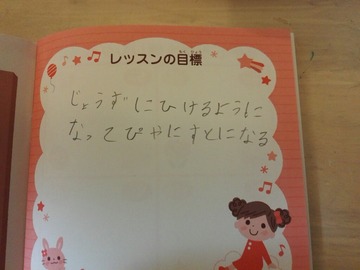 レッスンの目標
じょうずにひけるように
なってぴやにすとになる